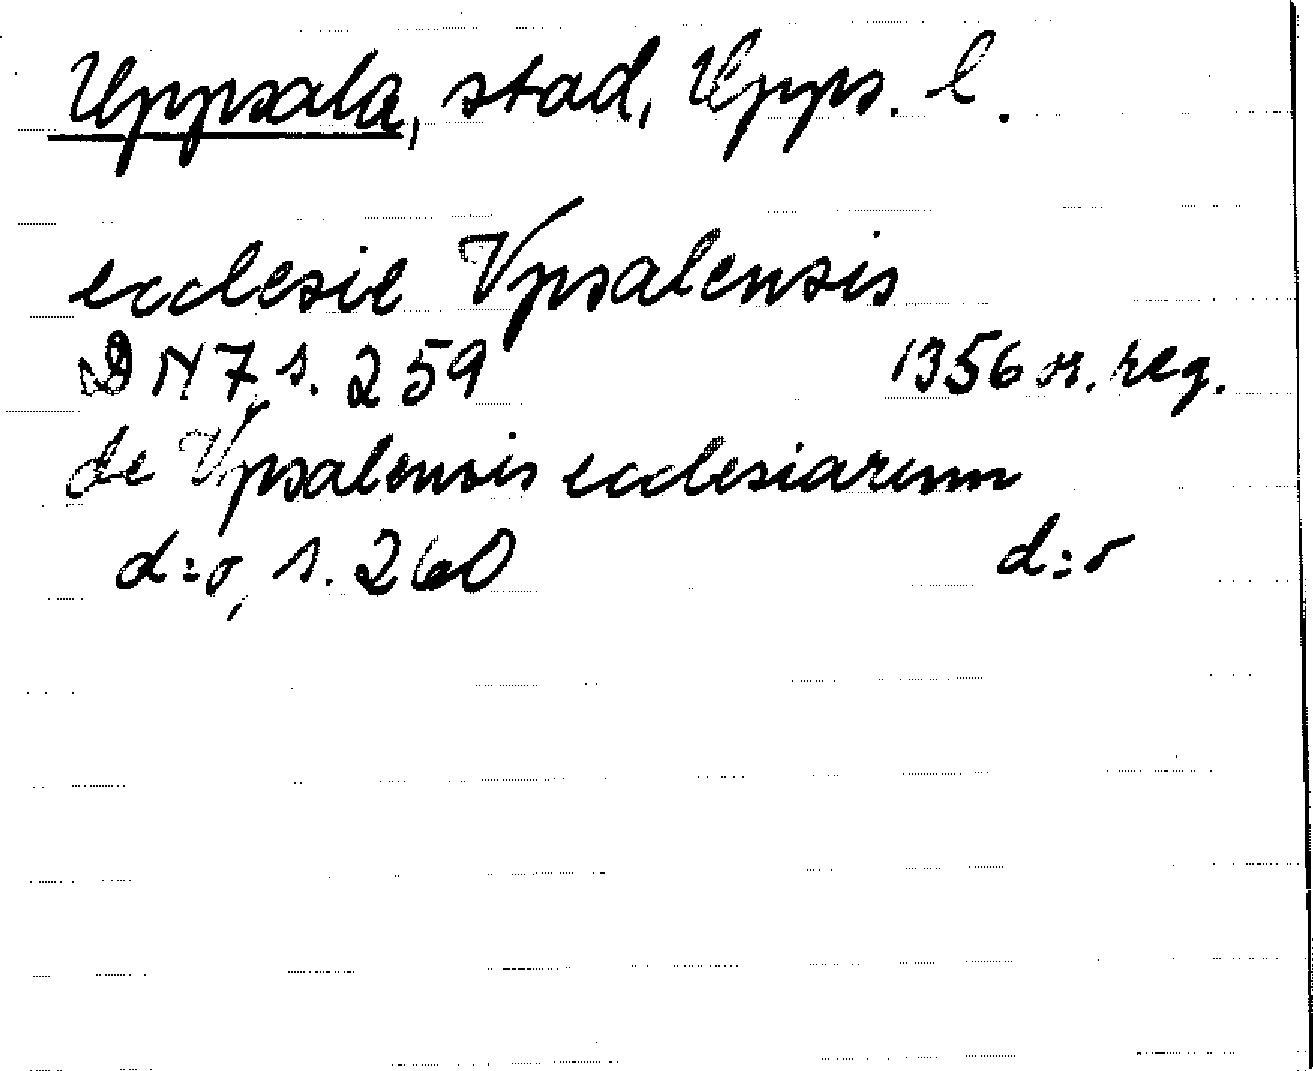 Uppsala, stad, Upps. l.
ecclesie Vpsalensis
DN 7 s. 259 1356 or. reg.
de Vpsalensis ecclesiarum
d:o, s. 260 d:o